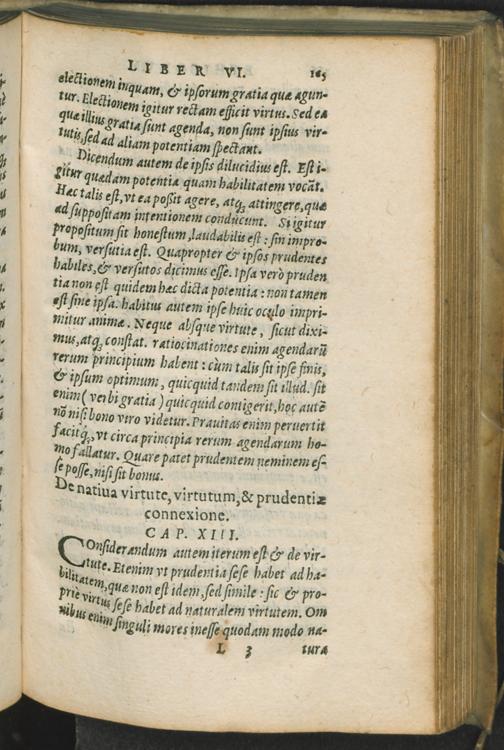 LIBER VI. 165
electionem inquam, & ipsorum gratia quæ agun-
tur. Electionem igitur rectam efficit virtus. Sed ea
quæ illius gratia sunt agenda, non sunt ipsius vir-
tutis, sed ad aliam potentiam spectant.
Dicendum autem de ipsis dilucidius est. Est i-
gitur quædam potentia quam habilitatem vocāt.
Hæc talis est, vt ea poßit agere, atq; attingere, quæ
ad suppositam intentionem conducunt. Si igitur
propositum sit honestum, laudabilis est: sin impro-
bum, versutia est. Quapropter & ipsos prudentes
habiles, & versutos dicimus esse. Ipsa verò pruden
tia non est quidem hæc dicta potentia: non tamen
est sine ipsa. habitus autem ipse huic oculo impri-
mitur animæ. Neque absque virtute, sicut dixi-
mus, atq; constat. ratiocinationes enim agendarū
rerum principium habent: cùm talis sit ipse finis,
& ipsum optimum, quicquid tandem sit illud. sit
enim (verbi gratia) quicquid contigerit, hoc autē
nō nisi bono viro videtur. Prauitas enim peruertit
facitq;, vt circa principia rerum agendarum ho-
mo fallatur. Quare patet prudentem neminem es-
se posse, nisi sit bonus.
De natiua virtute, virtutum, & prudentiæ
connexione.
CAP. XIII.
COnsiderandum autem iterum est & de vir-
tute. Etenim vt prudentia sese habet ad ha-
bilitatem, quæ non est idem, sed simile: sic & pro-
priè virtus sese habet ad naturalem virtutem. Om
nibus enim singuli mores inesse quodam modo na-
L 3 turæ